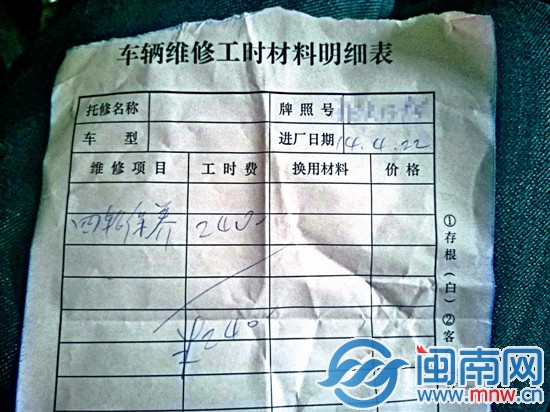 车辆维修工时材料明细表
托修名称 牌照号
车型 进厂日期 14.4.22
维修项目 工时费 换用材料 价格
四轮保养 240
240
①存根(白)②客
闽南网
www.mnw.cn